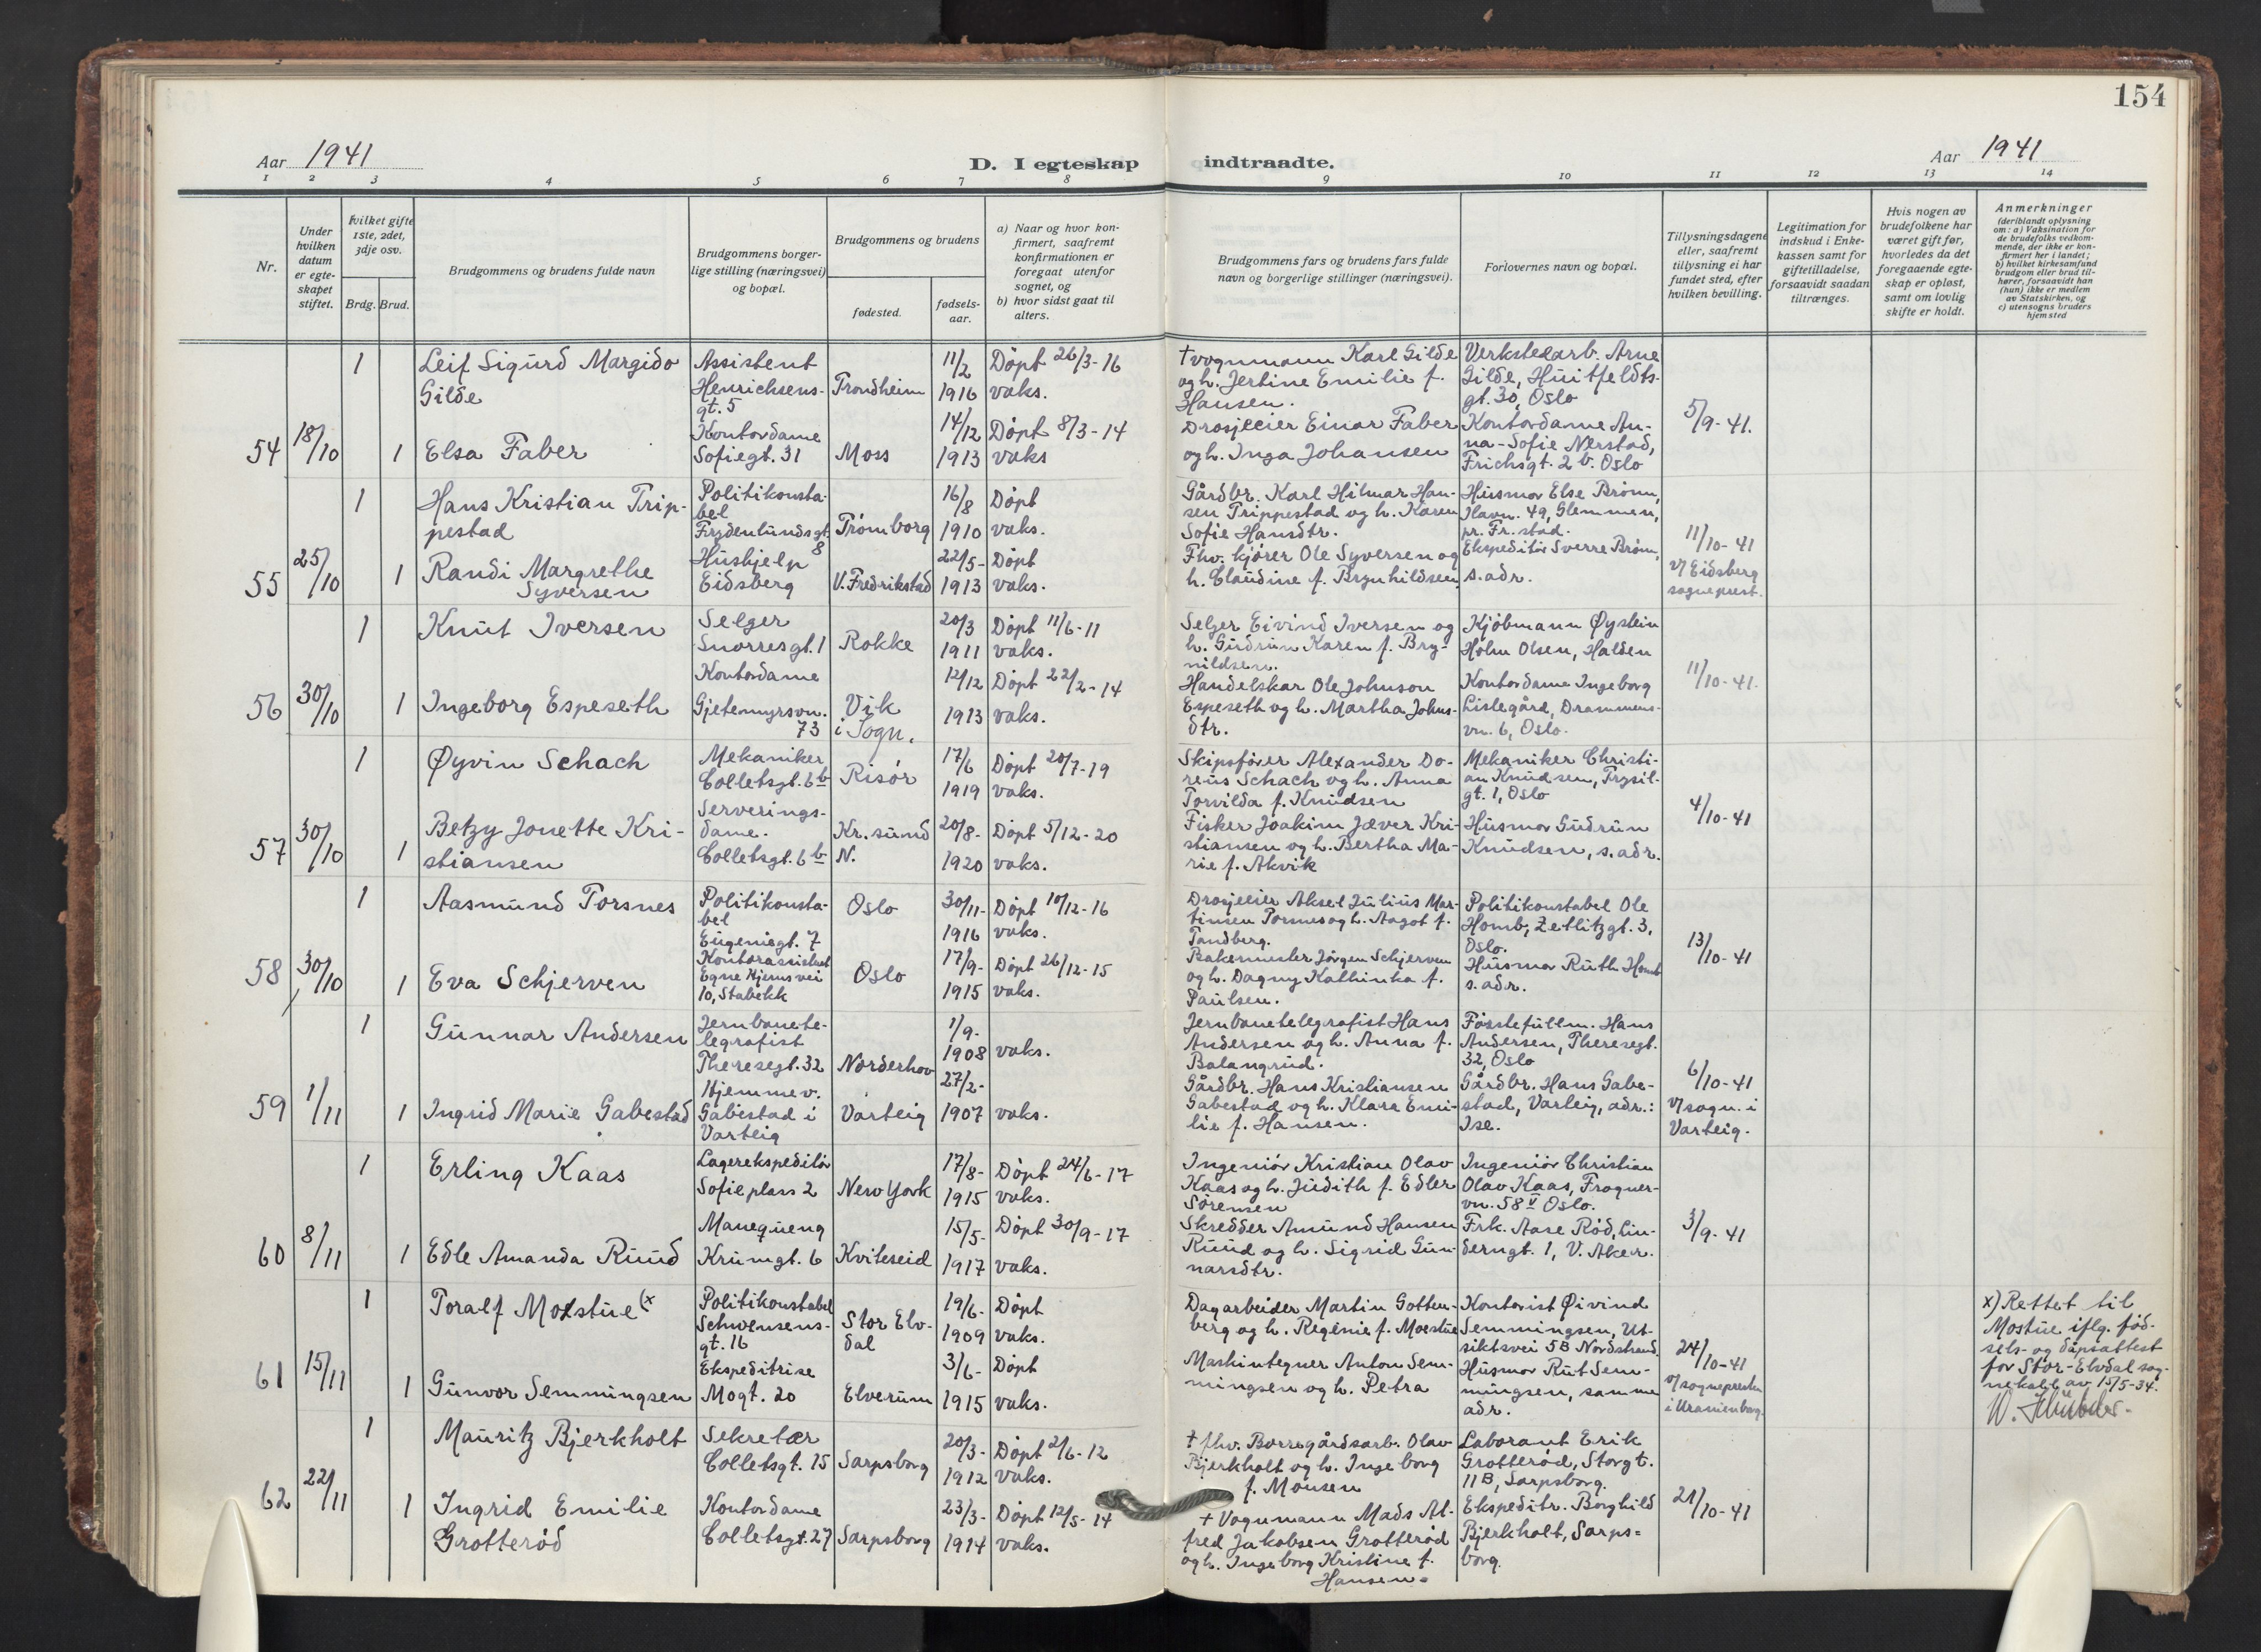 154
Aar 1941
D. I egteskap indtraadte.
Aar 1941
1 2 3 4 5 6 7 8 9 10 11 12 13 14
Nr.
Under
hvilken
datum
er egte-
skapet
stiftet.
hvilket gifte
1ste, 2det,
3dje osv.
Brdg. Brud.
Brudgommens og brudens fulde navn
Brudgommens borger-
lige stilling (næringsvei)
og bopæl.
Brudgommens og brudens
fødested.
fødsels-
aar.
a) Naar og hvor kon-
firmert, saafremt
konfirmationen er
foregaat utenfor
sognet, og
b) hvor sidst gaat til
alters.
Brudgommens fars og brudens fars fulde
navn og borgerlige stillinger (næringsvei).
Forlovernes navn og bopæl.
Tillysningsdagene
eller, saafremt
tillysning ei har
fundet sted, efter
hvilken bevilling.
Legitimation for
indskud i Enke-
kassen samt for
giftetilladelse,
forsaavidt saadan
tiltrænges.
Hvis nogen av
brudefolkene har
været gift før,
hvorledes da det
foregaaende egte-
skap er opløst,
samt om lovlig
skifte er holdt.
Anmerkninger
(deriblandt oplysning
om: a) Vaksination for
de brudefolks vedkom-
mende, der ikke er kon-
firmert her i landet;
b) hvilket kirkesamfund
brudgom eller brud til-
hører, forsaavidt han
(hun) ikke er medlem
av Statskirken, og
c) utensogns bruders
hjemsted
54
18/10
1
Leif Sigurd Margido
Gilde
Assistent
Henrichsens-
gt. 5
Trondheim
11/2
1916
Døpt 26/3-16
vaks.
† vognmann Karl Gilde
og h. Jertine Emilie f.
Hansen.
Verkstedarb. Arne
Gilde, Huitfeldts-
gt. 30, Oslo
1
Elsa Faber
Kontordame
Sofiegt. 31
Moss
14/12
1913
Døpt 8/3-14
vaks
Drosjeeier Einar Faber
og h. Inga Johansen
Kontordame An-
na-Sofie Nerstad,
Frichsgt. 2 b. Oslo
5/9-41.
55
25/10
1
Hans Kristian Trip-
pestad
Politikonsta-
bel
Frydenlundsgt.
8
Trømborg
16/8
1910
Døpt
vaks.
Gårdbr. Karl Hilmar Han-
sen Trippestad og h. Karen
Sofie Hansdtr.
Husmor Else Brønn,
Ilavn. 49, Glemmen,
pr. Fr.stad.
1
Randi Margrethe
Syversen
Hushjelp
Eidsberg
V. Fredrikstad
22/5-
1913
Døpt
vaks.
Fhv. kjører Ole Syversen og
h. Claudine f. Brynhildsen
Ekspeditør Sverre Brønn,
s. adr.
11/10-41
v/ Eidsberg
sogneprest.
56
30/10
1
Knut Iversen
Selger
Snorresgt. 1
Rokke
20/3
1911
Døpt 11/6-11
vaks.
Selger Eivind Iversen og
h. Gudrun Karen f. Bry-
nildsen.
Kjøbmann Øystein
Holm Olsen, Halden
1
Ingeborg Espeseth
Kontordame
Gjetemyrsvn.
73
Vik
i Sogn.
12/12
1913
Døpt 22/2-14
vaks.
Handelskar Ole Johnson
Espeseth og h. Martha Johns-
dtr.
Kontordame Ingeborg
Lislegård, Drammens-
vn. 6, Oslo.
11/10-41.
57
30/10
1
Øyvin Schach
Mekaniker
Colletsgt. 6 b
Risør
17/6
1919
Døpt 20/7-19
vaks.
Skipsfører Alexander Do-
reus Schach og h. Anna
Torvilda f. Knudsen
Mekaniker Christi-
an Knudsen, Trysil-
gt. 1, Oslo
1
Betzy Jonette Kri-
stiansen
Serverings-
dame.
Colletsgt. 6 b
Kr.sund
N.
20/8-
1920
Døpt 5/12-20
vaks.
Fisker Joakim Jæver Kri-
stiansen og h. Bertha Ma-
rie f. Akvik
Husmor Gudrun
Knudsen, s. adr.
4/10-41
58
30/10
1
Aasmund Torsnes
Politikonsta-
bel
Eugeniegt. 7
Oslo
30/11-
1916
Døpt 10/12-16
vaks.
Drosjeeier Aksel Julius Mar-
tinsen Torsnes og h. Aagot f.
Tandberg.
Politikonstabel Ole
Homb, Zetlitzgt. 3,
Oslo.
1
Eva Schjerven
Kontorassistent
Egne Hjems vei
10, Stabekk
Oslo
17/9-
1915
Døpt 26/12-15
vaks.
Bakermester Jørgen Schjerven
og h. Dagny Kathinka f.
Paulsen.
Husmor Ruth Homb
s. adr.
13/10-41
59
1/11
1
Gunnar Andersen
Jernbanete-
legrafist
Theresegt. 32
Norderhov
1/9-
1908
vaks.
Jernbanetelegrafist Hans
Andersen og h. Anna f.
Balangrud.
Førstefullm. Hans
Andersen, Theresegt.
32, Oslo
1
Ingrid Marie Gabestad
Hjemmev.
Gabestad i
Varteig
Varteig
27/2-
1907
vaks.
Gårdbr. Hans Kristiansen
Gabestad og h. Klara Emi-
lie f. Hansen.
Gårdbr. Hans Gabe-
stad, Varteig, adr.:
Ise.
6/10-41
v/ sogn. i
Varteig.
60
8/11
1
Erling Kaas
Lagerekspeditør
Sofieplass 2
New York
17/8-
1915
Døpt 24/6-17
vaks.
Ingeniør Kristian Olav
Kaas og h. Judith f. Edler
Sørensen
Ingeniør Christian
Olav Kaas, Frogner-
vn. 58 V Oslo.
1
Edle Amanda Ruud
Manequeng
Krumgt. 6
Kviteseid
15/5-
1917
Døpt 30/9-17
vaks.
Skredder Amund Hansen
Ruud og h. Sigrid Gun-
narsdtr.
Frk. Aase Rød, Lin-
derngt. 1, V. Aker.
3/9-41
61
15/11
1
Toralf Mostue (x
Politikonstabel
Schwensens-
gt. 16
Stor Elv-
dal
19/6-
1909
Døpt
vaks.
Dagarbeider Martin Gotten-
berg og h. Regine f. Moestue
Kontorist Øivind
Semmingsen, Ut-
siktsvei 5B Nordstrand.
1
Gunvor Semmingsen
Ekspeditrise
Mogt. 20
Elverum
3/6-
1915
Døpt
vaks.
Maskintegner Anton Sem-
mingsen og h. Petra
Husmor Rut Sem-
mingsen, samme
adr.
24/10-41
v/ sognepresten
i Uranienborg.
x) Rettet til
Mostue iflg. fød-
sels- og dåpsattest
for Stor-Elvdal sog-
nekall av 15/5-34.
62
22/11
1
Mauritz Bjerkholt
Sekretær
Colletsgt. 15
Sarpsborg
20/3-
1912
Døpt 2/6-12
vaks.
† fhv. Borregårdsarb. Olav
Bjerkholt og h. Ingeborg
f. Monsen
Laborant Erik
Grotterød, Storgt.
11 B, Sarpsborg.
1
Ingrid Emilie
Grotterød
Kontordame
Colletsgt. 27
Sarpsborg
23/3-
1914
Døpt 12/5-14
vaks.
† Vognmann Mads Al-
fred Jakobsen Grotterød
og h. Ingeborg Kristine f.
Hansen.
Ekspeditr. Borghild
Bjerkholt, Sarps-
borg.
21/10-41